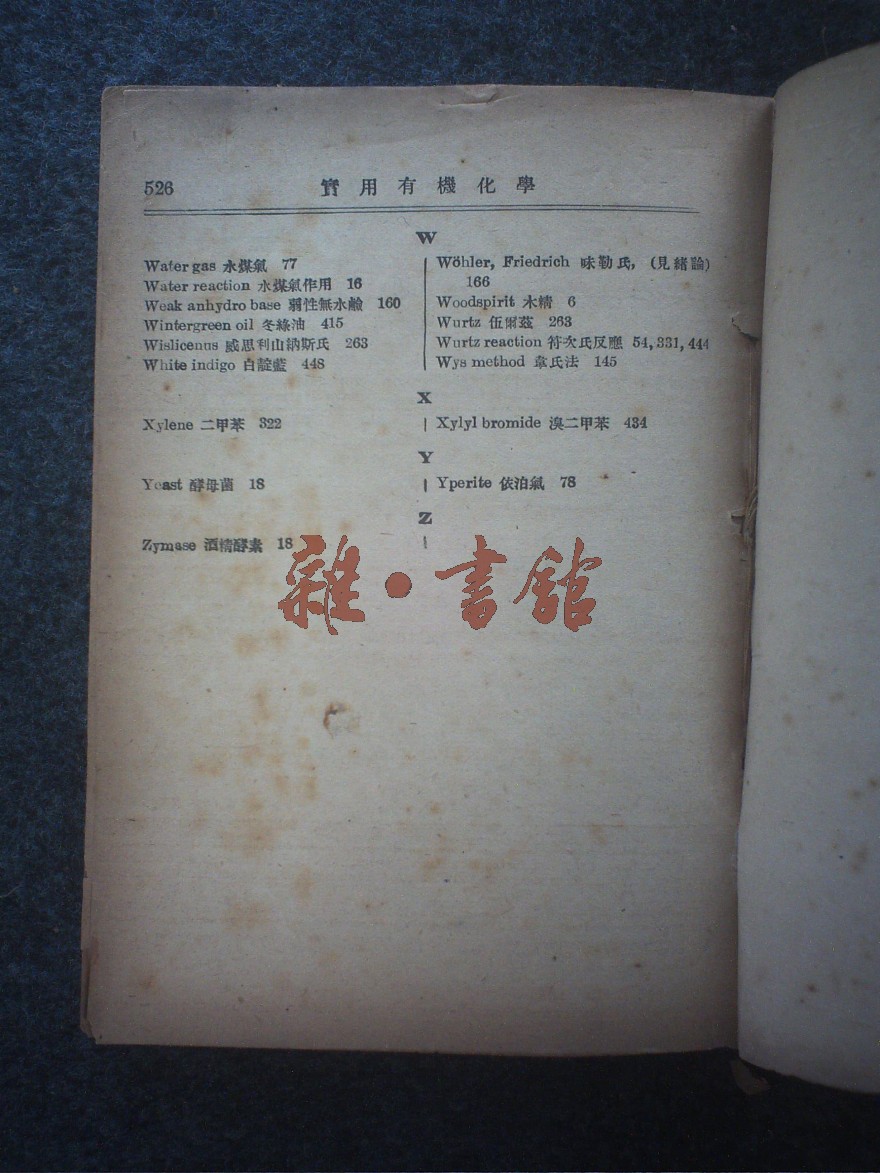 526
實用有機化學
W
Water gas 水煤氣 77
Water reaction 水煤氣作用 16
Weak anhydro base 弱性無水鹼 160
Wintergreen oil 冬綠油 415
Wislicenus 威思利山納斯氏 263
White indigo 白靛藍 448
Wöhler, Friedrich 味勒氏, (見緒論)
166
Woodspirit 木精 6
Wurtz 伍爾茲 263
Wurtz reaction 符次氏反應 54, 331, 444
Wys method 韋氏法 145
X
Xylene 二甲苯 322
Xylyl bromide 溴二甲苯 434
Y
Yeast 酵母菌 18
Yperite 依泊氣 78
Z
Zymase 酒精酵素 18
雜·書館